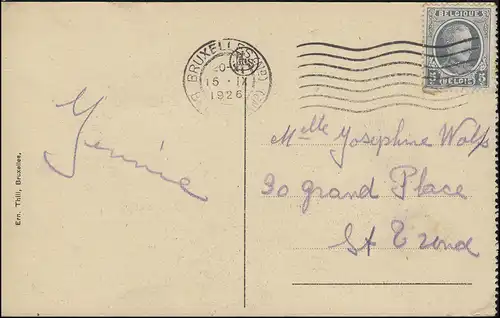 BRUXELLES
15 · IX
1926
BELGIQUE
5 BELGIË 5
Jennie
Melle Josephine Wolfs
30 Grand Place
St Trond
Ern. Thill, Bruxelles.